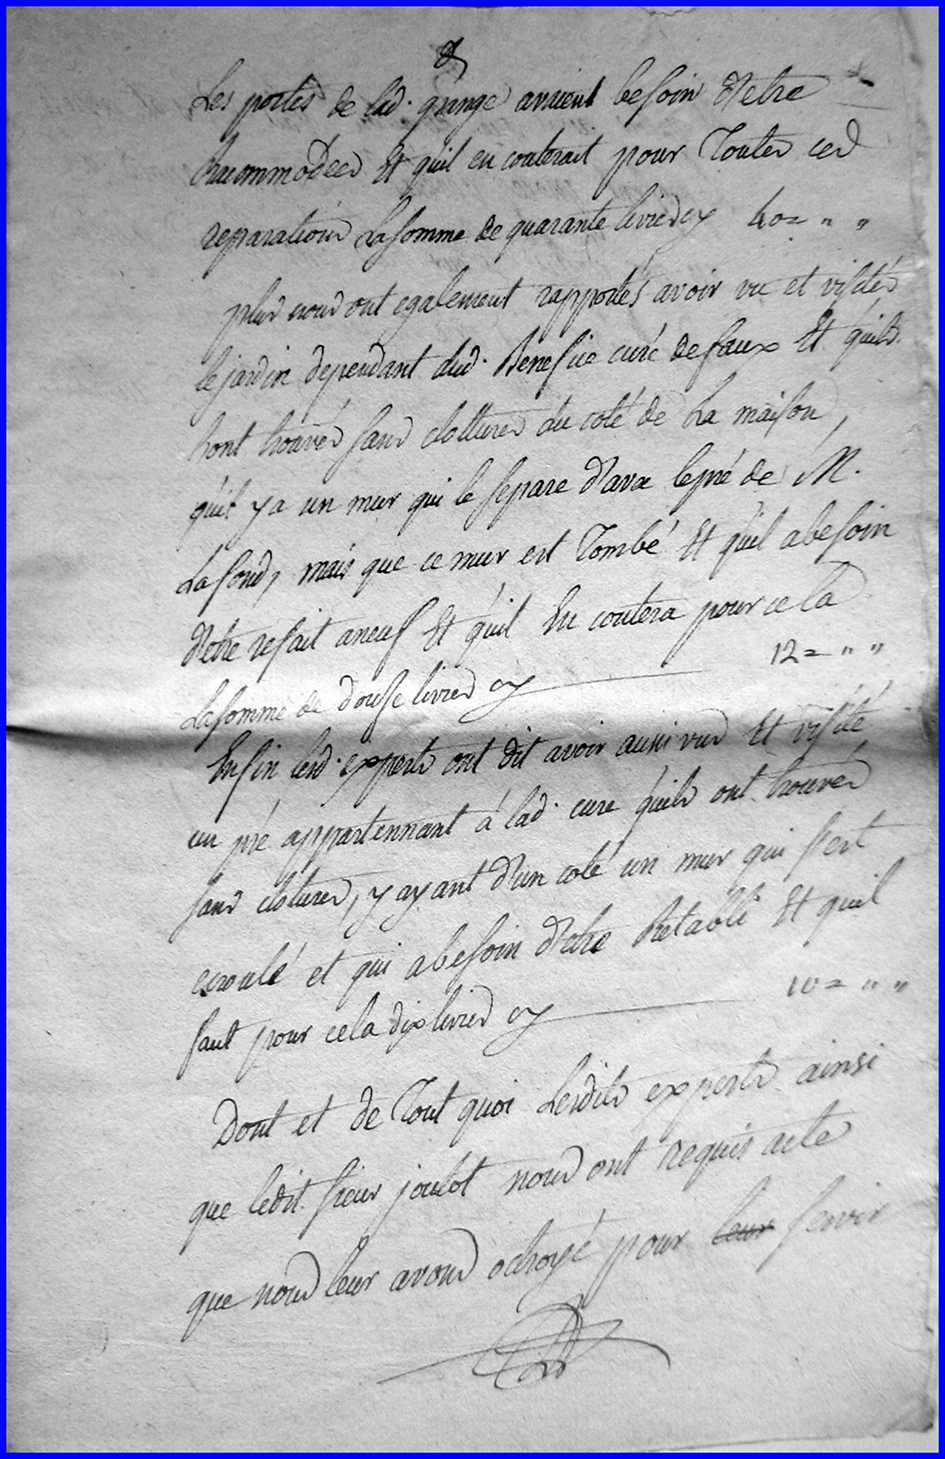 8
Les portes de lad. grange avaient besoin d'etre
racommodees Et quil en couterait pour Toutes ces
reparations La somme de quarante livres cy 40= " "
plus nous ont egalement rapportés avoir vu et visités
le jardin dependant dud. Benefice cure de faux Et quils
lont trouvés sans clottures du coté de La maison,
quil y a un mur qui le separe d'avec le pré de M.
Lafond, mais que ce mur est Tombé Et quil a besoin
d'etre refait a neuf Et quil En coutera pour cela
La somme de douse livres cy 12= " "
Enfin lesd. experts ont dit avoir aussi vus Et visité
un pré appartennant à lad. cure quils ont trouvés
sans clotures, y ayant d'un coté un mur qui s'est
ecroulé et qui a besoin d'etre Retabli Et quil
faut pour cela dix livres cy 10= " "
Dont et de Tout quoi Lesdits experts ainsi
que ledit sieur joulot nous ont requis acte
que nous leur avons octroyé pour leur servir